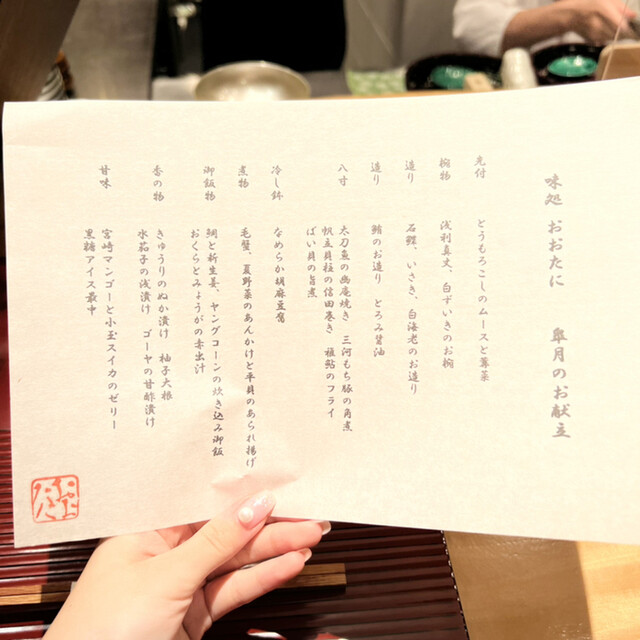 味処 おおたに 皐月のお献立
先付 とうもろこしのムースと蓴菜
椀物 浅利真丈、白ずいきのお椀
造り 石鰈、いさき、白海老のお造り
造り 鮪のお造り とろみ醤油
八寸 太刀魚の幽庵焼き 三河もち豚の角煮
帆立貝柱の信田巻き 稚鮎のフライ
ばい貝の旨煮
冷し鉢 なめらか胡麻豆腐
煮物 毛蟹、夏野菜のあんかけと平貝のあられ揚げ
御飯物 鯛と新生姜、ヤングコーンの炊き込み御飯
おくらとみょうがの赤出汁
香の物 きゅうりのぬか漬け 柚子大根
水茄子の浅漬け ゴーヤの甘酢漬け
甘味 宮崎マンゴーと小玉スイカのゼリー
黒糖アイス最中